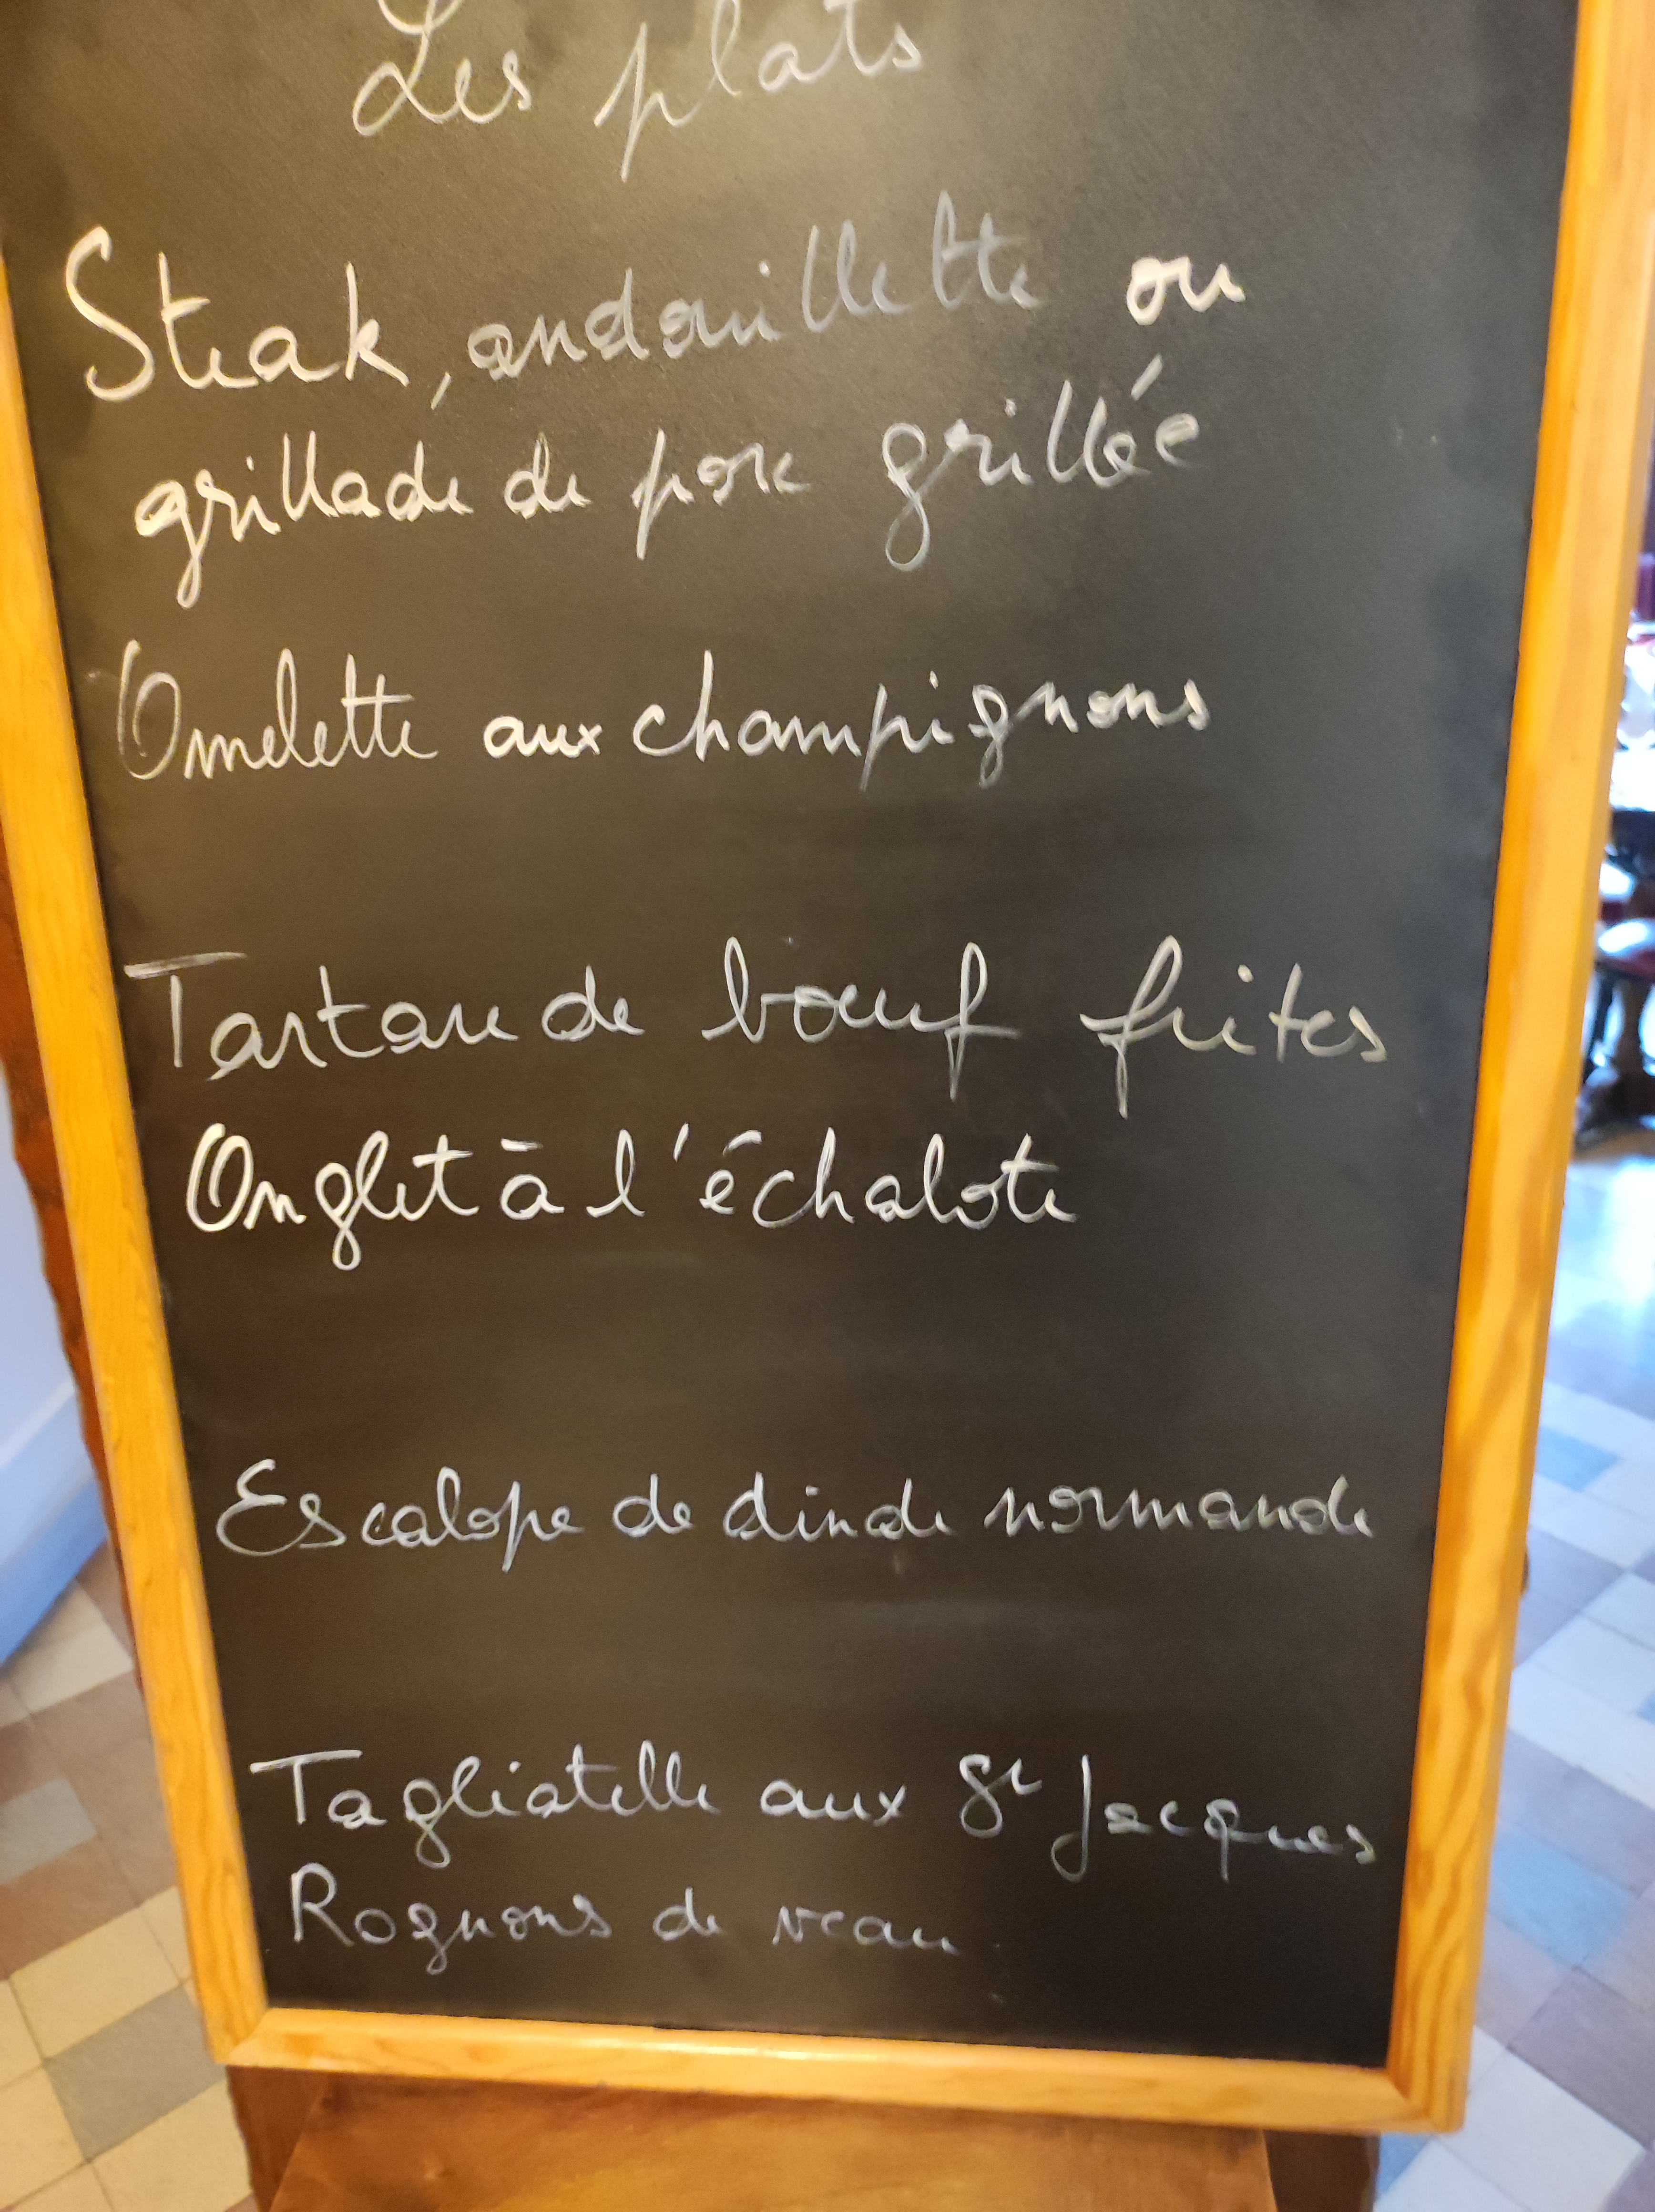 Les plats
Steak, andouillette ou
grillade de porc grillée
Omelette aux champignons
Tartare de bœuf frites
Onglet à l'échalote
Escalope de dinde normande
Tagliatelle aux St Jacques
Rognons de veau